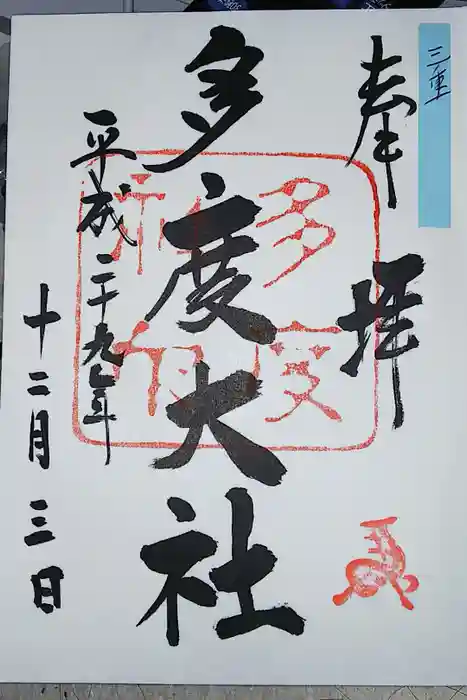 三重
奉拝
多度大社
多度
神社
平成二十九年
十二月三日